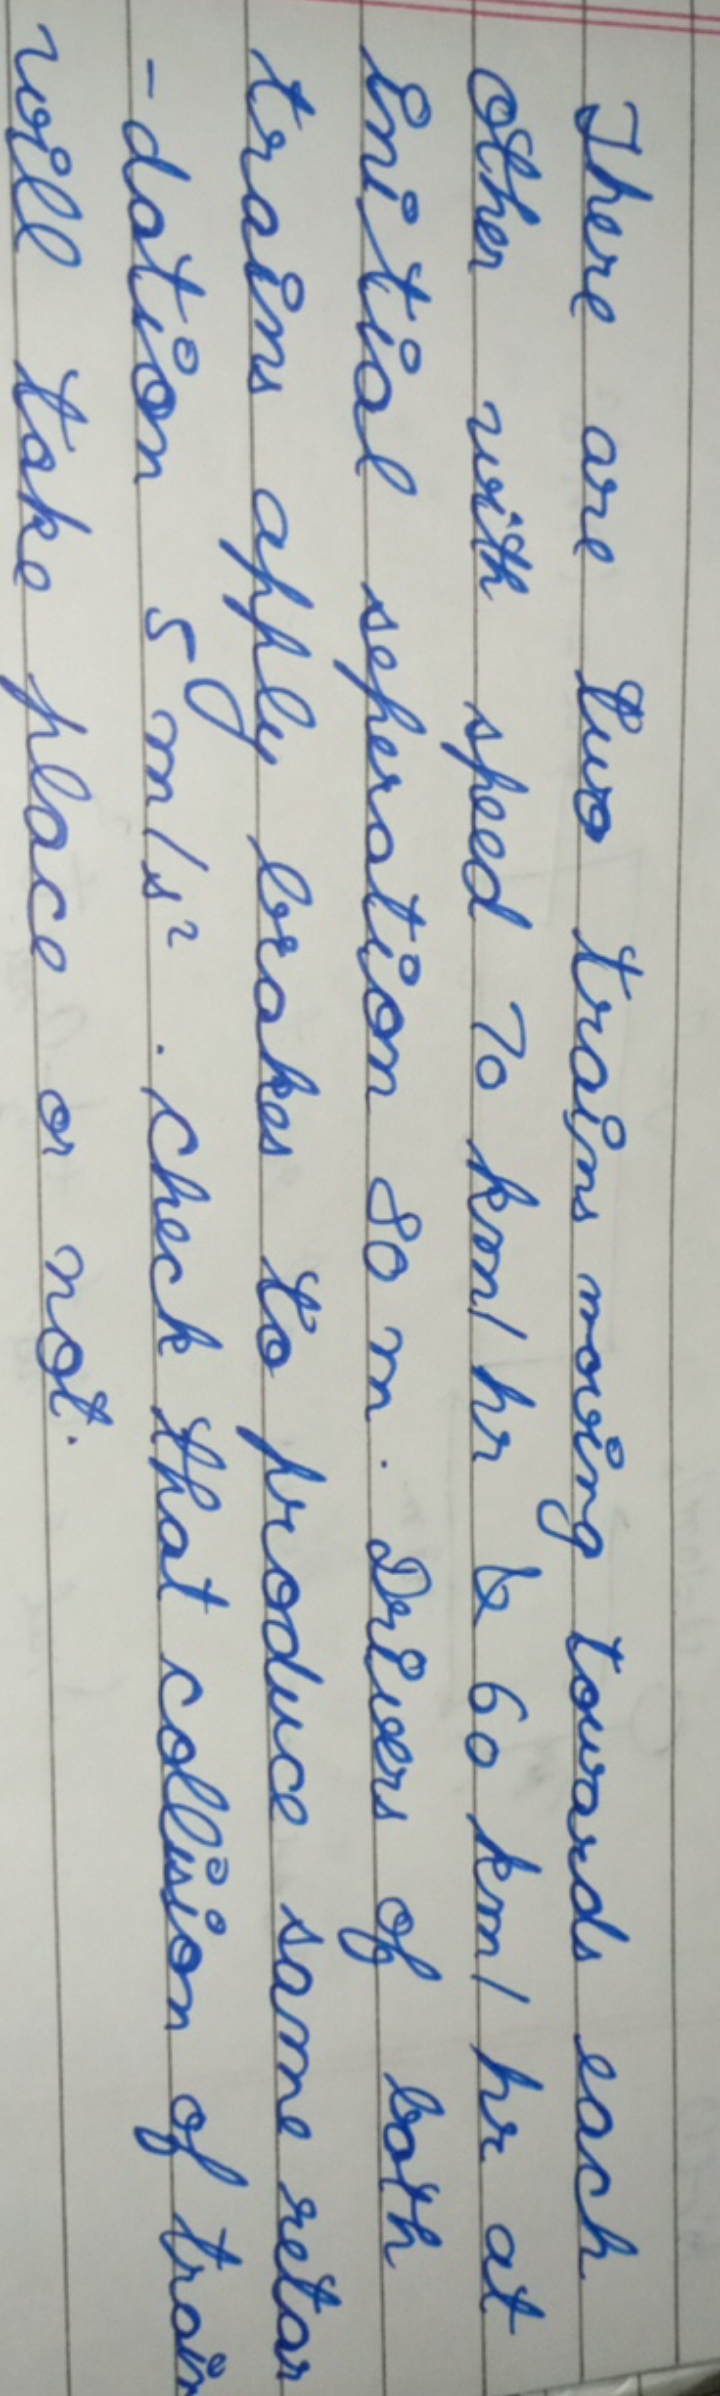 There are two trains moving towards each
other with speed 70 km/hr & 60 km/hr at
initial seperation 80 m. Drivers of both
trains apply brakes to produce same retar
-dation 5 m/s². Check that collision of train
will take place or not.